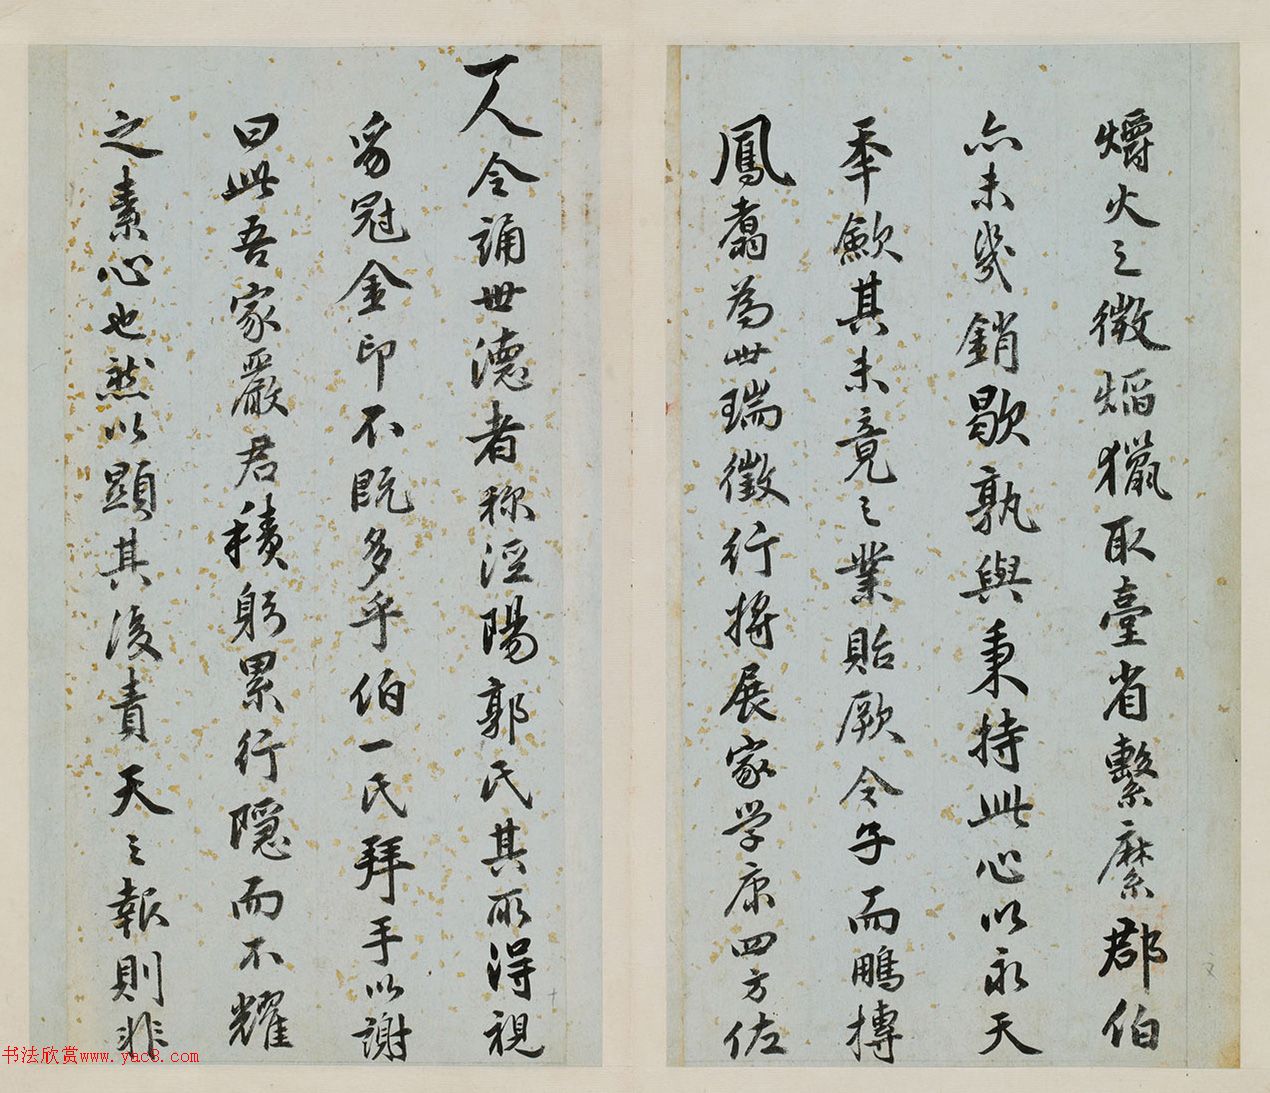 爝火之微熖獵取臺省繫縻郡伯
亦未幾銷歇孰與秉持此心以永天
年歛其未竟之業貽厥令子而鵬摶
鳳翥為世瑞徵行將展家学康四方佐
一人令誦世德者称涇陽郭氏其所得視
豸冠金印不既多乎伯一氏拜手以謝
曰此吾家嚴君積躬累行隱而不耀
之素心也然以顯其後責天之報則非
书法欣赏www.yac8.com